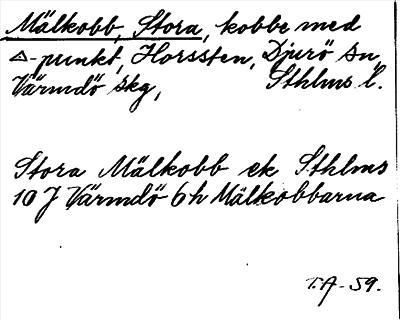 Mälkobb, Stora, kobbe med
△-punkt, Horssten, Djurö sn,
Värmdö skg, Sthlms l.
Stora Mälkobb ek Sthlms
10 J Värmdö 6 h Mälkobbarna
T.A -59.